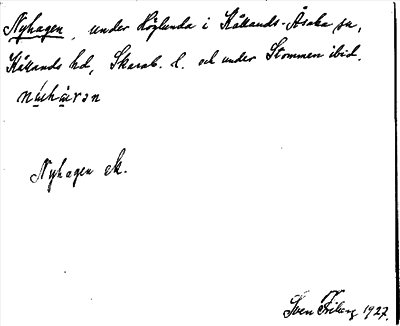 Nyhagen, under Höglunda i Kållands-Åsaka sn,
Kållands hd, Skarab. l. och under Stommen ibid.
Nyhagen ek.
Sven Friberg 1927.